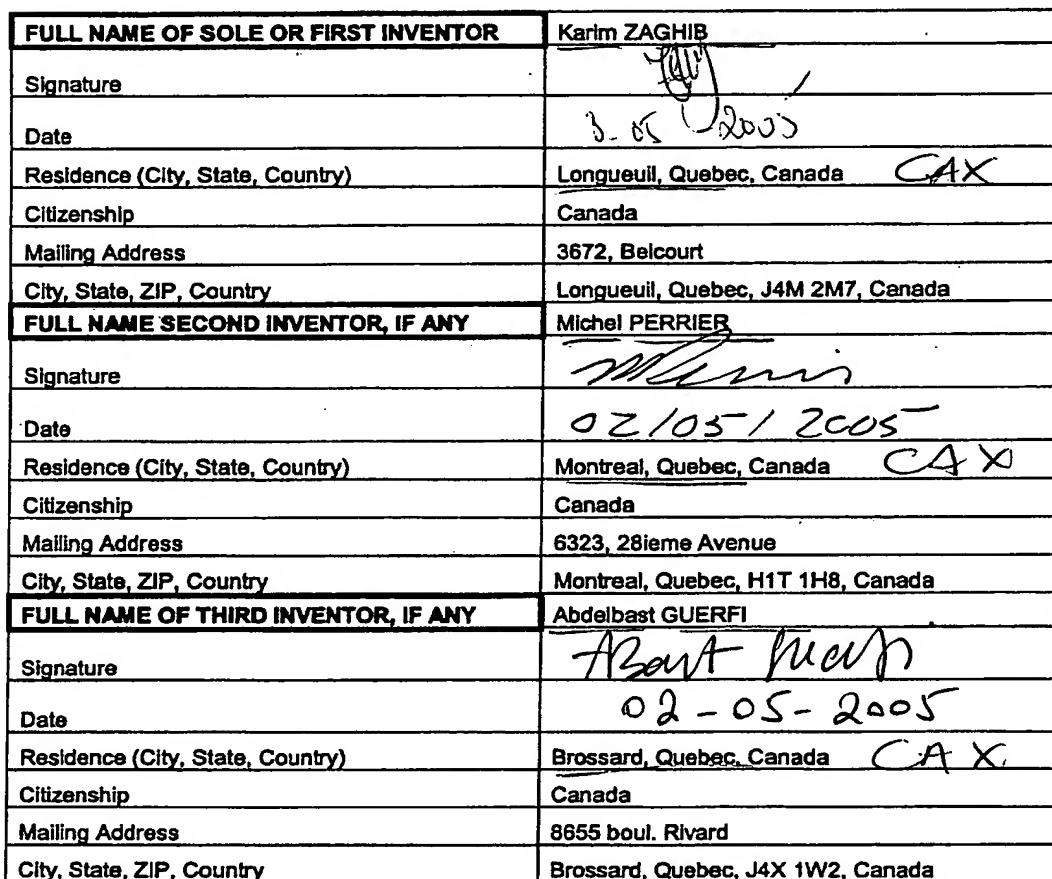 FULL NAME OF SOLE OR FIRST INVENTOR Karim ZAGHIB
Signature
Date 3-05 2005
Residence (City, State, Country) Longueuil, Quebec, Canada CAX
Citizenship Canada
Mailing Address 3672, Belcourt
City, State, ZIP, Country Longueuil, Quebec, J4M 2M7, Canada
FULL NAME SECOND INVENTOR, IF ANY Michel PERRIER
Signature
Date 02/05/2005
Residence (City, State, Country) Montreal, Quebec, Canada CAX
Citizenship Canada
Mailing Address 6323, 28ieme Avenue
City, State, ZIP, Country Montreal, Quebec, H1T 1H8, Canada
FULL NAME OF THIRD INVENTOR, IF ANY Abdelbast GUERFI
Signature
Date 02-05-2005
Residence (City, State, Country) Brossard, Quebec, Canada CAX
Citizenship Canada
Mailing Address 8655 boul. Rivard
City, State, ZIP, Country Brossard, Quebec, J4X 1W2, Canada